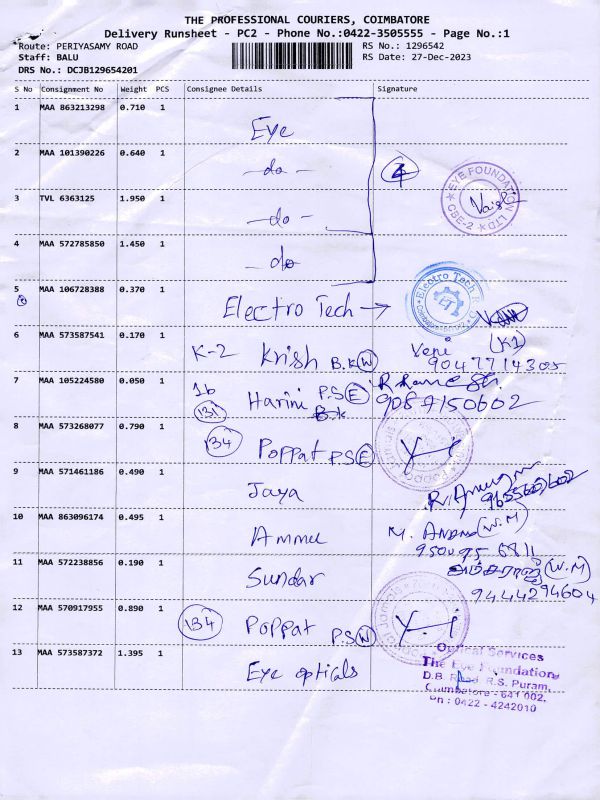 THE PROFESSIONAL COURIERS, COIMBATORE
Delivery Runsheet - PC2 - Phone No.:0422-3505555 - Page No.:1
Route: PERIYASAMY ROAD RS No.: 1296542
Staff: BALU RS Date: 27-Dec-2023
DRS No.: DCJB129654201
S No Consignment No Weight PCS Consignee Details Signature
1 MAA 863213298 0.710 1
Eye
2 MAA 101390226 0.640 1
-do-
4
EYE FOUNDATION LTD CBE-2
3 TVL 6363125 1.950 1
-do-
4 MAA 572785850 1.450 1
-do
5 MAA 106728388 0.370 1
Electro Tech →
Electro Tech
6 MAA 573587541 0.170 1
K-2 Krish B.K W
Veni (K1)
9047714305
7 MAA 105224580 0.050 1
16 131 Harini P.S E
9087150602
8 MAA 573268077 0.790 1
134 Poppat P.S E
9 MAA 571461186 0.490 1
Jaya
10 MAA 863096174 0.495 1
Ammu
(W.M)
95009 5 6811
11 MAA 572238856 0.190 1
Sundar
(W.M)
9444294604
12 MAA 570917955 0.890 1
134 Poppat P.S W
13 MAA 573587372 1.395 1
Eye opticals
Optical Services
The Eye Foundation,
D.B. Road, R.S. Puram,
Coimbatore - 641 002.
Ph : 0422 - 4242010